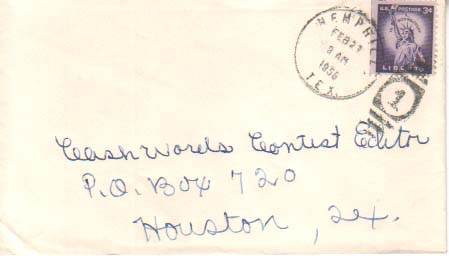 U.S. POSTAGE 3¢
LIBERTY
HEMPHILL
FEB 27
8 AM
1956
TEX.
1
Cashwords Contest Editor
P.O. Box 720
Houston, Tex.